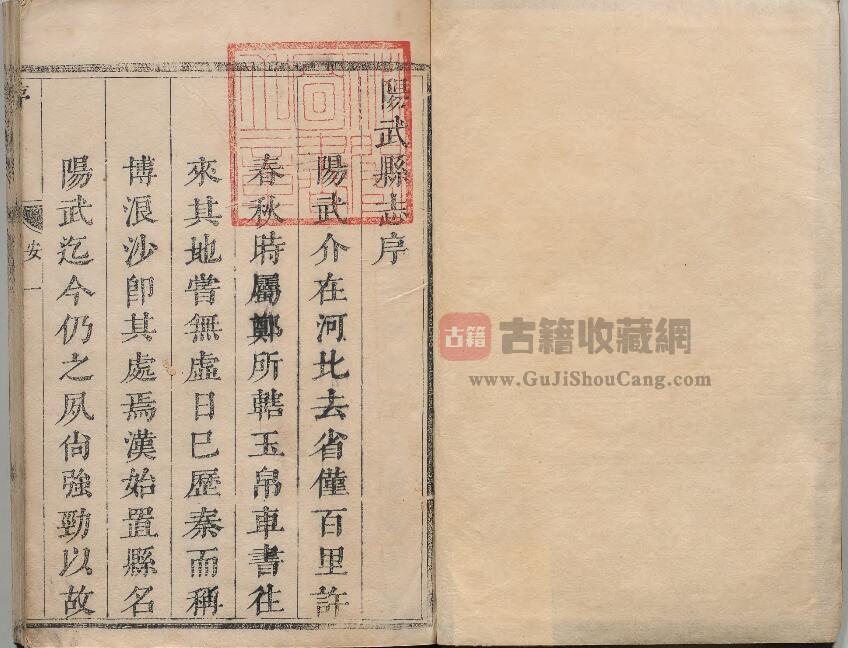 陽武縣志序
陽武介在河北去省僅百里許
春秋時屬鄭所轄玉帛車書往
來其地嘗無虛日已歷秦而稱
博浪沙即其處焉漢始置縣名
陽武迄今仍之夙尙強勁以故
序
安
一
古籍
古籍收藏網
www.GuJiShouCang.com